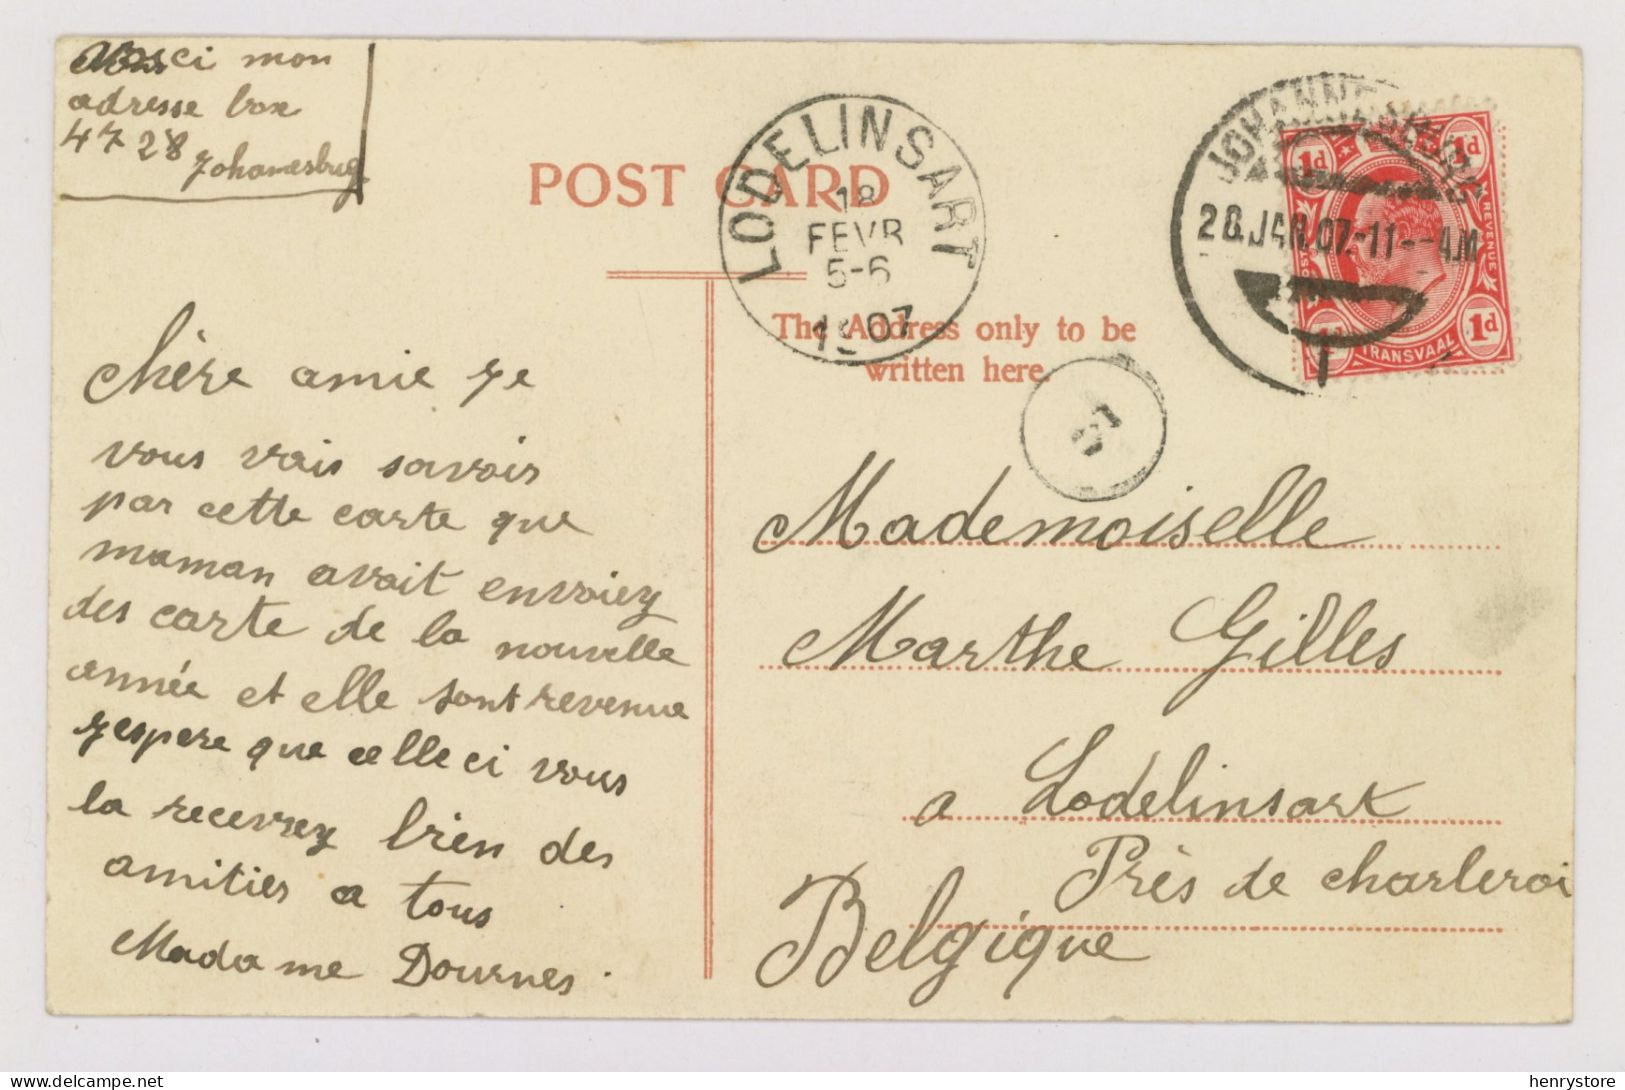 ci mon
adresse box
4728
Johanesbug
POST CARD
LODELINSART
18
FEVR
5-6
1907
JOHANNESBURG
28.JAN.07.-11--AM
1
1d 1d
REVENUE
1d 1d
TRANSVAAL
The Address only to be
written here.
chère amie je
vous vais savoir
par cette carte que
maman avait envoiez
des carte de la nouvelle
année et elle sont revenue
jespere que celle ci vous
la recevrez bien des
amitier a tous
Madame Dournes.
Mademoiselle
Marthe Gilles
a Lodelinsart
Près de charleroi
Belgique
henrystore